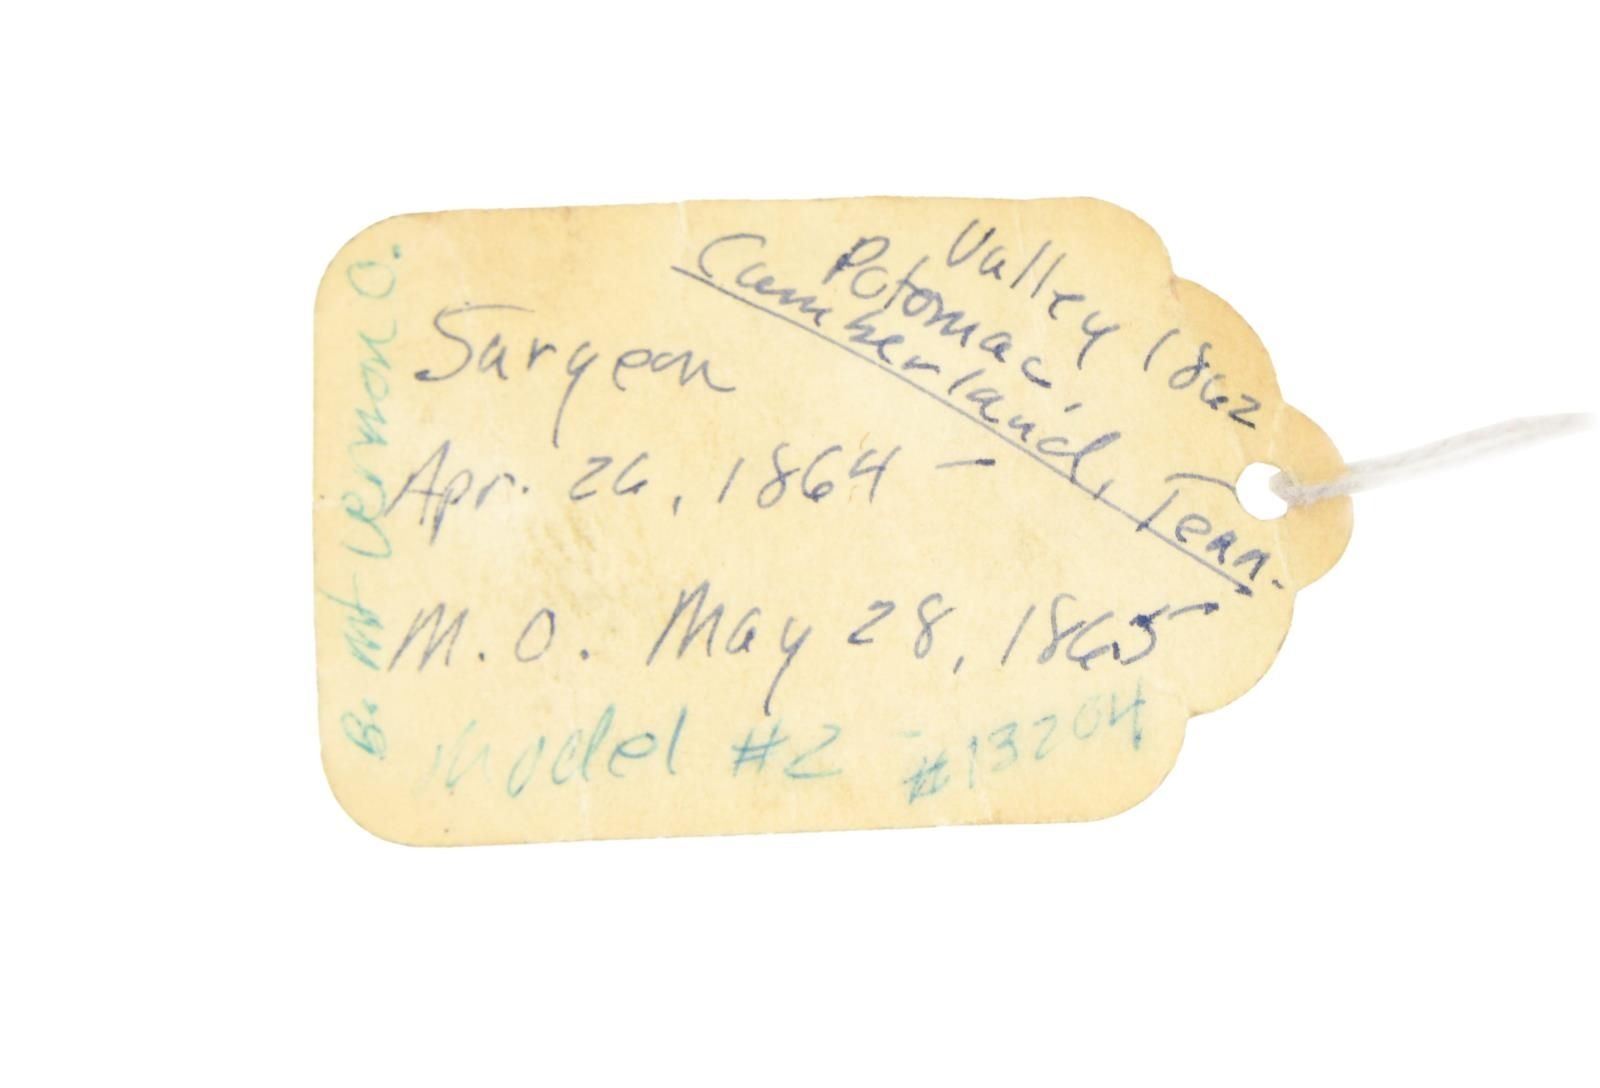 Valley 1862
Potomac
Cumberland, Tenn.
Surgeon
Apr. 26, 1864 —
M.O. May 28, 1865
Model #2 - #13204
B. Mt Vernon O.